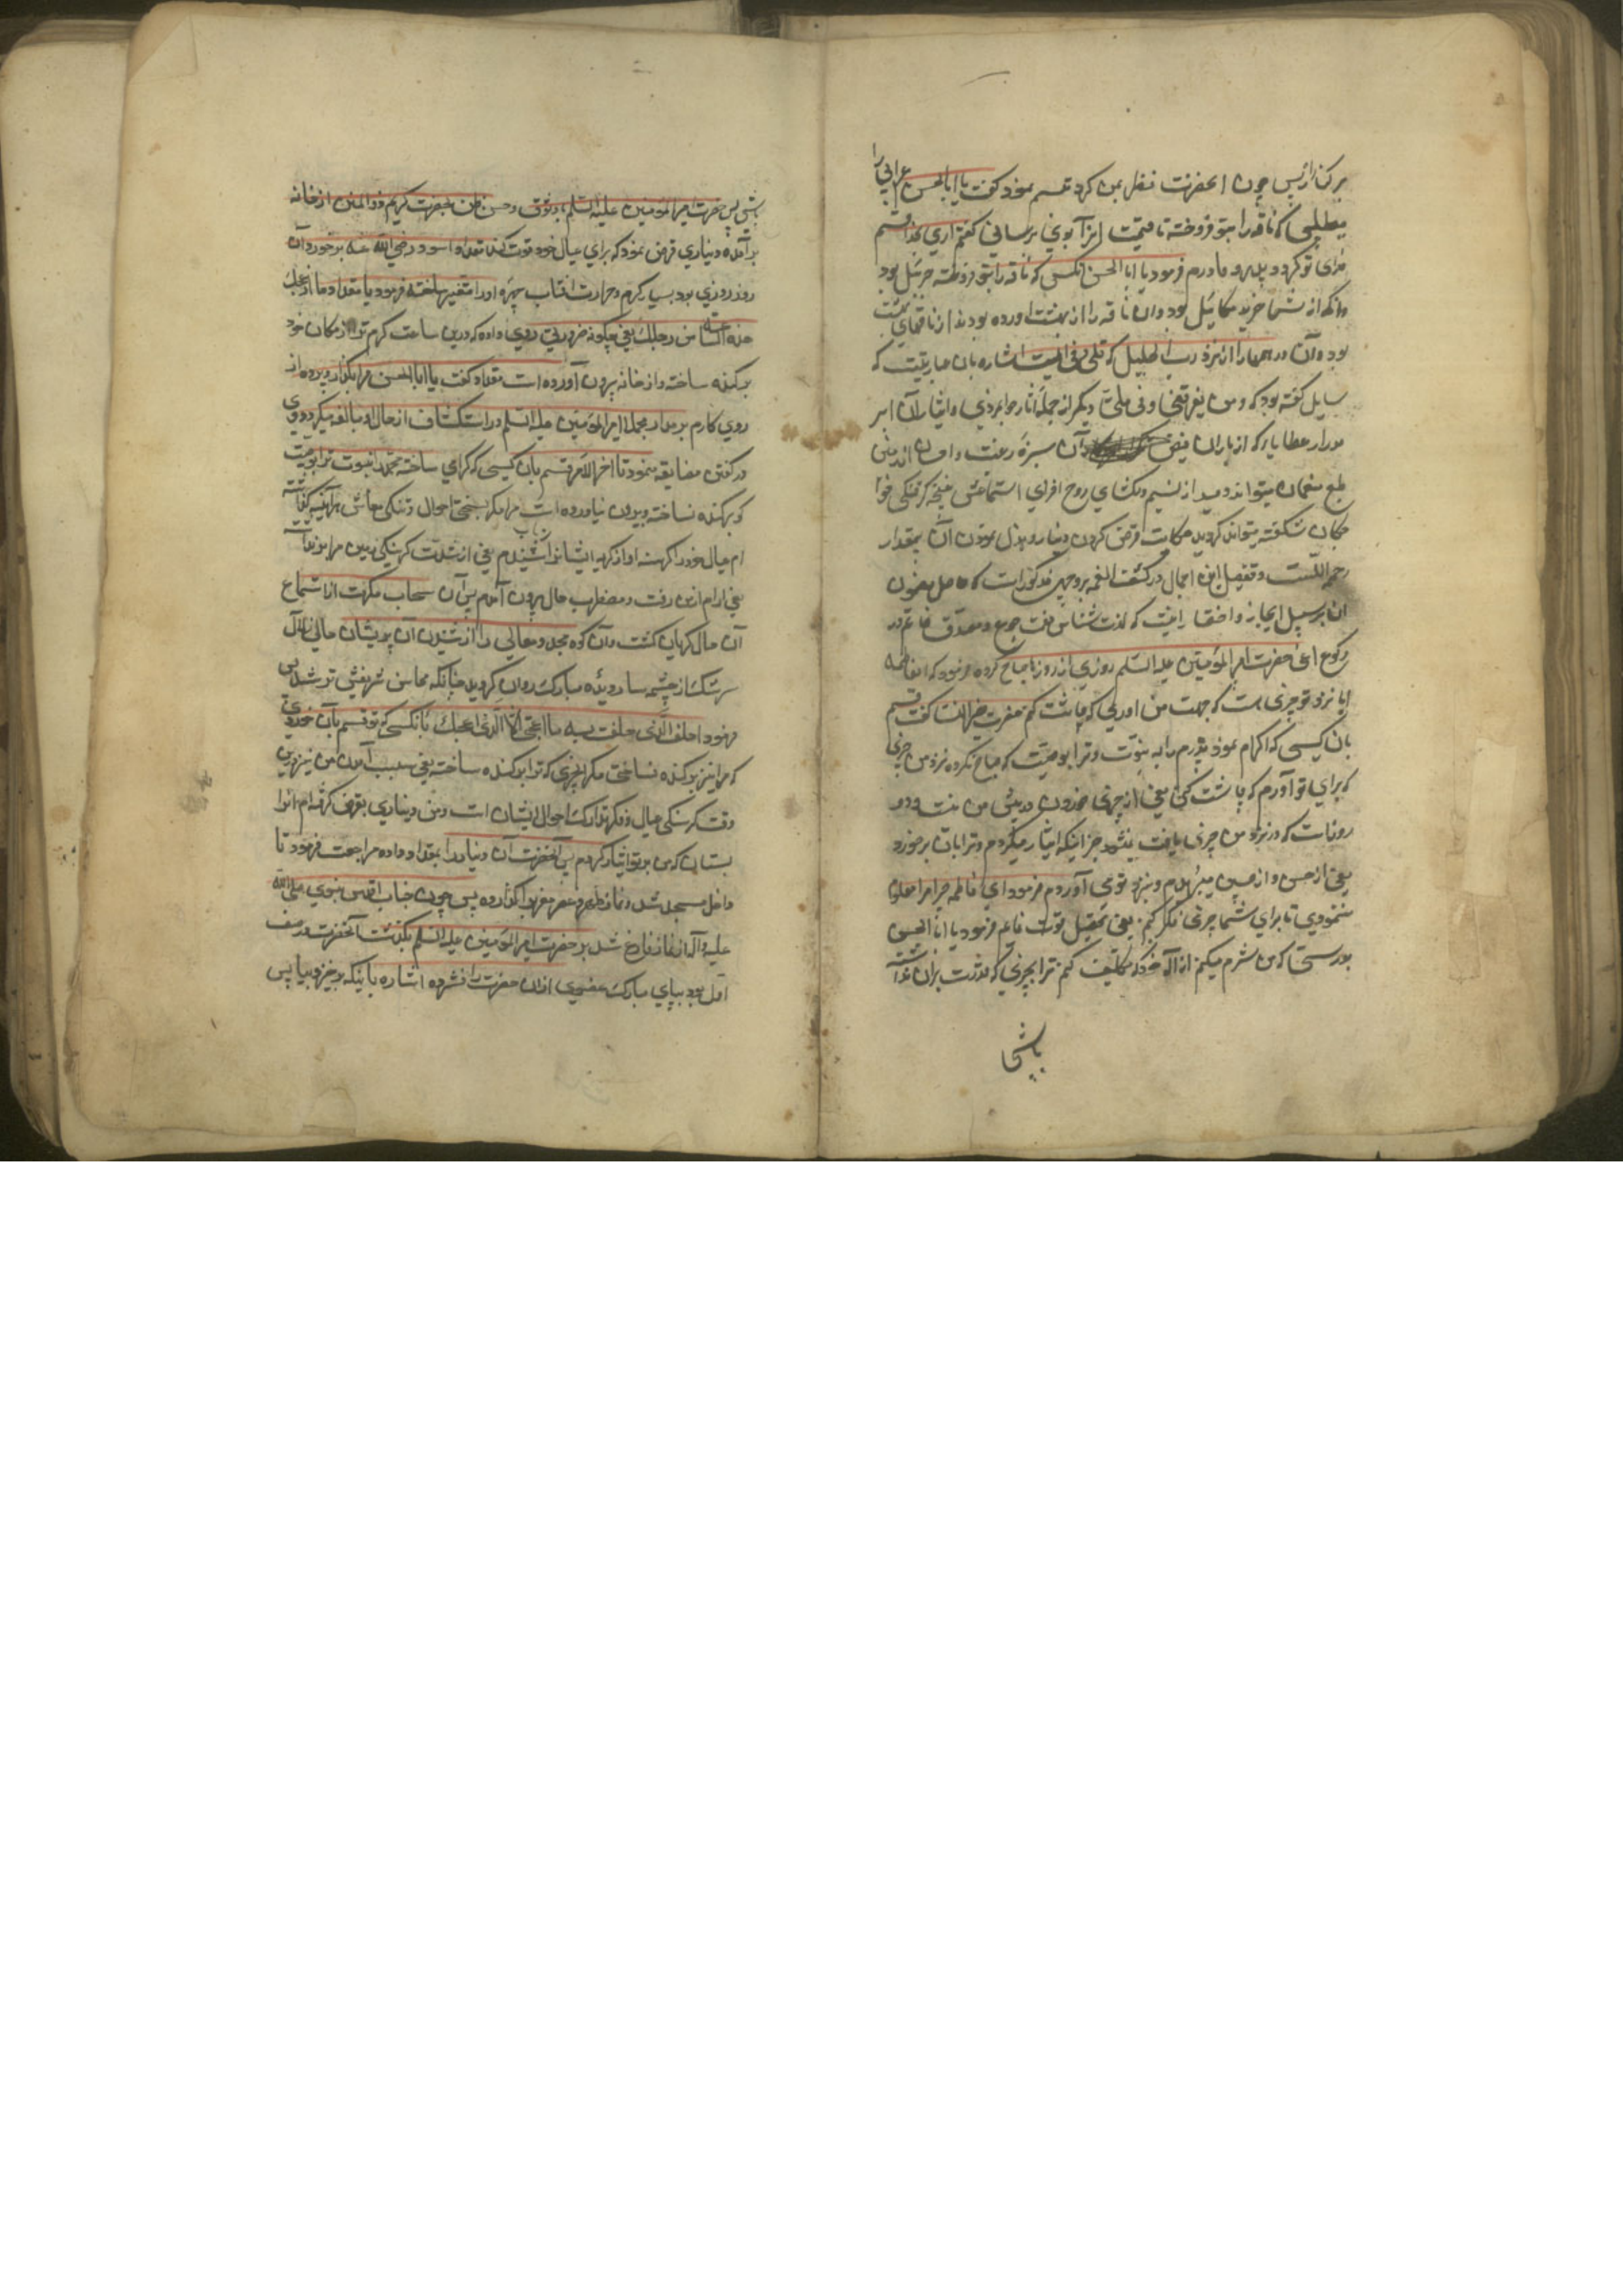 برکنار پس چون آنحضرت نظر بمن کرد تبسم نمود کفت یا ابا الحسن اعرابی را
میطلبی که ناقه را بتو فروخته تا قیمت انرا بوی برسانی کفتم اری بخدا قسم
فدای تو کردد پدر و مادرم فرمود یا ابا الحسن انکسی که ناقه را بتو فروخته جبرئیل بود
وانکه از شما خرید میکائیل بود وان ناقه را از بهشت اورده بودند از ناقهای بهشت
بوده وآن درهمها را از نزد رب الجلیل که اشاره بان عباریتست که
سایل کفته بود که ومن یقرضنی و دیکر از جمله اثار جوانمردی وایثار آن ابر
مدرار عطایا بر که از باران فیض آن سبزه
طبع میتواند دمید از نسیم دلکشای روح افزای استماعش غنچه
شکفته میتواند کردید حکایت قرض کردن دینار و بذل نمودن آن بمقدار
رحمه اللّه است وتفصیل این اجمال در کشف الغمه بر وجهی مذکور است که حاصل مضمون
آن بر سبیل ایجاز واختصار اینست که لذت شناس نعت جوع ومصدق خاتم در
رکوع اعنی حضرت امیر المؤمنین علیه السّلم روزی از روزها صباح کرده فرمود که ایفاطمه
ایا نزد تو چیزی هست که جهت من اوری که چاشت کنم حضرت خیر النسا کفت قسم
بان کسی که اکرام نمود پدرم را به نبوّت وترا بوصیّت که صباح نکرده نزد من چیزی
که برای تو آورم که چاشت کنی یعنی از چیزی خوردن در پیش من نیست ودو
روز است که در نزد من چیزی یافت نیشود جز اینکه ایثار میکردم وترا بان بر خود
یعنی از حسن واز حسین میبریدم وبنزد تو می آوردم فرمود ای فاطمه چرا مرا معلوم
ننمودی تا برای شما چیزی فکر کنم یعنی تحصیل قوت نمایم فرمود یا ابا الحسن
بدرستی که من شرم میکنم از اله خود که تکلیف کنم ترا بچیزی که قدرت بران نداشته
باشی
باشی پس حضرت امیر المؤمنین علیه السّلم بوثوق وحسن ظن بحضرت کریم ذو المنن از خانه
بر آمده دیناری قرض نمود که برای عیال خود قوت کند مقداد اسود رضی اللّه عنه بر خورد وآن
روز روزی بود بسیار کرم وحرارت افتاب چهره اورا متغیر ساخته فرمود یا مقداد ما ازعجک
هذه الساعة من رحلک یعنی چکونه ضرورتی روی داده که درین ساعت کرم ترا از مکان خود
برکنده ساخته واز خانه بیرون آورده است مقداد کفت یا ابا الحسن مرا بکذار وپرده از
روی کارم بر مدار مجملا امیر المؤمنین علیه السلم در استکشاف از حال او مبالغه میکرد ووی
در کفتن مضایقه مینمود تا اخر الامر قسم بان کسی که کرامی ساخته محمد را بنبوت وترا بوصیت
که برکنده نساخته وبیرون نیاورده است مرا مکر احوال وتنکی معاش
ام عیال خود را کرسنه اواز کریه ایشانرا شنیدم یعنی از شدّت کرسنکی زمین مرا
یعنی ارام از من رفت ومضطرب حال بیرون آمدم پس آن سحاب مکرمت از استماع
آن حال کریان کشت وآن کوه مجد ومعالی را از شنیدن آن پریشان حالی زلال
سرشک از چشمه سار دیده مبارک روان کردید چنانکه محاسن شریفش تر شد پس
فرمود احلف بالّذی حلفت به ما ازعجنی الّا الّذی ازعجک بانکسی که تو قسم بآن خوردی
که مرا نیز برکنده نساختی مکر انچیزی که ترا برکنده ساخته یعنی سبب آمدن من نیز درین
وقت کرسنکی عیال وفکر تدارک احوال ایشان است ومن دیناری بقرض کرفته ام انرا
بستان که من بر تو ایثار کردم پس آنحضرت آن دینار را بمقداد داده مراجعت فرمود تا
داخل مسجد شد ونماز ظهر وعصر ومغرب را کذارده پس چون جناب اقدس نبوی صلی اللّه
علیه وآله از نماز فارغ شد بر حضرت امیر المؤمنین علیه السلم بکذشت آنحضرت در صف
اوّل بود بپای مبارک عضوی ازان حضرت را فشرده اشاره باینکه برخیز وبیا پس